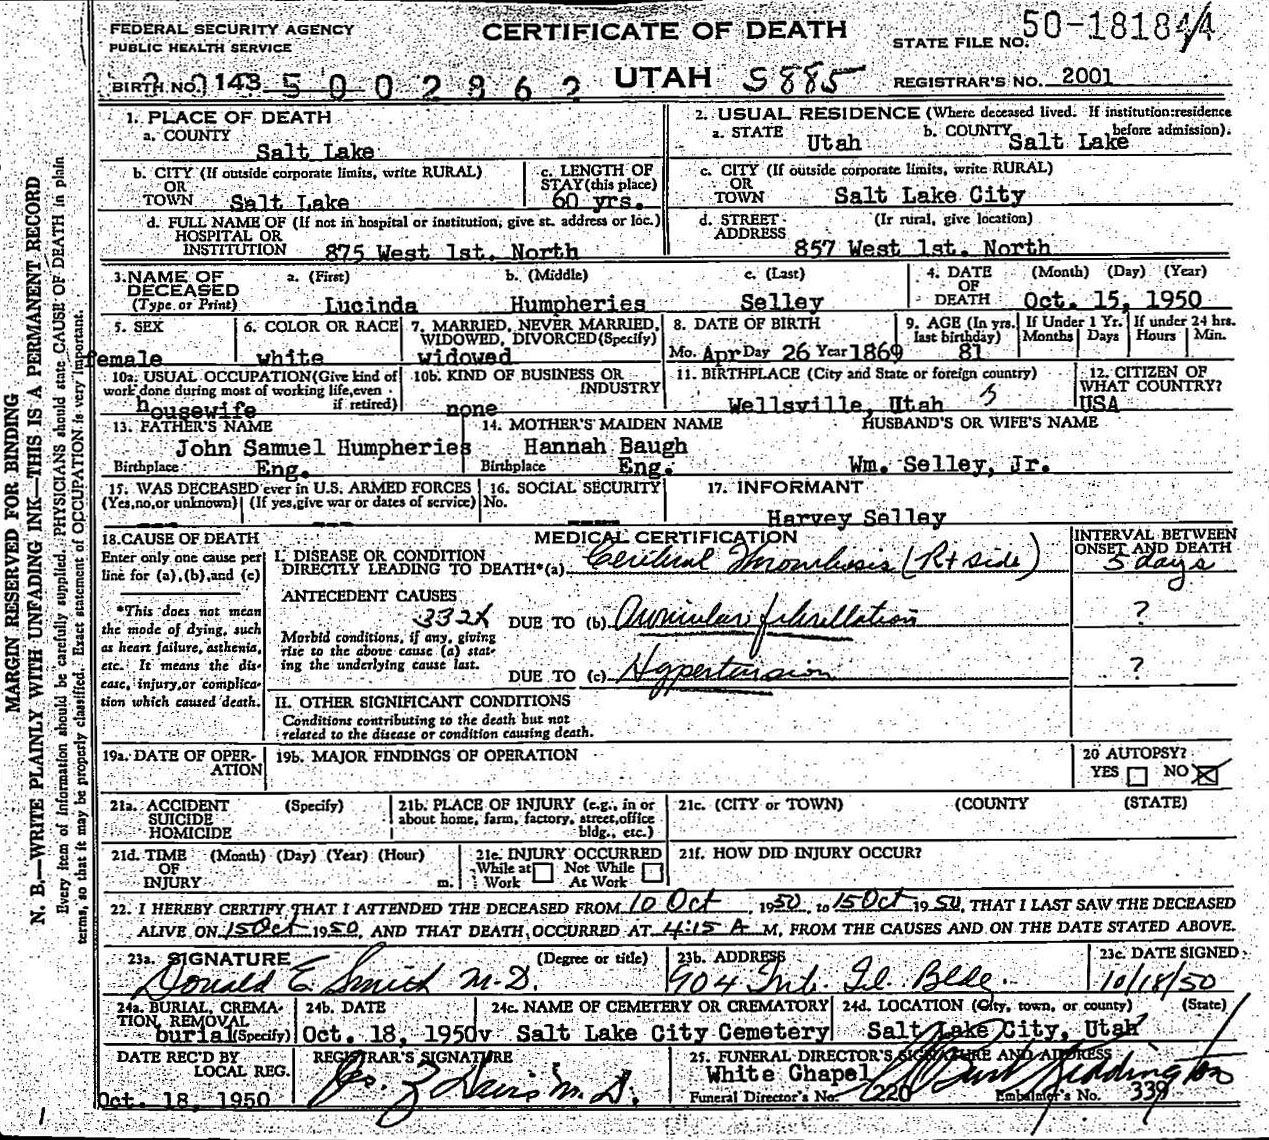 FEDERAL SECURITY AGENCY
PUBLIC HEALTH SERVICE
CERTIFICATE OF DEATH
STATE FILE NO. 50-181844
BIRTH NO. 143 5 0 0 2 8 6 2
UTAH S885
REGISTRAR'S NO. 2001
1. PLACE OF DEATH
a. COUNTY
Salt Lake
2. USUAL RESIDENCE (Where deceased lived. If institution:residence
before admission).
a. STATE Utah b. COUNTY Salt Lake
b. CITY (If outside corporate limits, write RURAL)
OR
TOWN Salt Lake
c. LENGTH OF
STAY (this place)
60 yrs.
c. CITY (If outside corporate limits, write RURAL)
OR
TOWN Salt Lake City
d. FULL NAME OF (If not in hospital or institution, give st. address or loc.)
HOSPITAL OR
INSTITUTION 875 West 1st. North
d. STREET (If rural, give location)
ADDRESS 857 West 1st. North
3. NAME OF
DECEASED
(Type or Print)
a. (First) b. (Middle) c. (Last)
Lucinda Humpheries Selley
4. DATE (Month) (Day) (Year)
OF
DEATH Oct. 15, 1950
5. SEX
female
6. COLOR OR RACE
white
7. MARRIED, NEVER MARRIED,
WIDOWED, DIVORCED(Specify)
widowed
8. DATE OF BIRTH
Mo. Apr Day 26 Year 1869
9. AGE (In yrs.
last birthday)
81
If Under 1 Yr.
Months Days
If under 24 hrs.
Hours Min.
10a. USUAL OCCUPATION(Give kind of
work done during most of working life,even
if retired)
housewife
10b. KIND OF BUSINESS OR
INDUSTRY
none
11. BIRTHPLACE (City and State or foreign country)
Wellsville, Utah
12. CITIZEN OF
WHAT COUNTRY?
USA
13. FATHER'S NAME
John Samuel Humpheries
Birthplace Eng.
14. MOTHER'S MAIDEN NAME
Hannah Baugh
Birthplace Eng.
HUSBAND'S OR WIFE'S NAME
Wm. Selley, Jr.
15. WAS DECEASED ever in U.S. ARMED FORCES
(Yes,no,or unknown) (If yes,give war or dates of service)
--- ---
16. SOCIAL SECURITY
No.
----
17. INFORMANT
Harvey Selley
18. CAUSE OF DEATH
Enter only one cause per
line for (a),(b),and (c)
*This does not mean
the mode of dying, such
as heart failure, asthenia,
etc. It means the dis-
ease, injury,or complica-
tion which caused death.
MEDICAL CERTIFICATION
I. DISEASE OR CONDITION
DIRECTLY LEADING TO DEATH*(a) Cerebral Thrombosis (Rt side)
INTERVAL BETWEEN
ONSET AND DEATH
5 days
ANTECEDENT CAUSES
332X DUE TO (b) Auricular fibrillation ?
Morbid conditions, if any, giving
rise to the above cause (a) stat-
ing the underlying cause last.
DUE TO (c) Hypertension ?
II. OTHER SIGNIFICANT CONDITIONS
Conditions contributing to the death but not
related to the disease or condition causing death.
19a. DATE OF OPER-
ATION
19b. MAJOR FINDINGS OF OPERATION
20 AUTOPSY?
YES NO X
21a. ACCIDENT (Specify)
SUICIDE
HOMICIDE
21b. PLACE OF INJURY (e.g., in or
about home, farm, factory, street,office
bldg., etc.)
21c. (CITY or TOWN) (COUNTY (STATE)
21d. TIME (Month) (Day) (Year) (Hour)
OF
INJURY m.
21e. INJURY OCCURRED
While at Work Not While At Work
21f. HOW DID INJURY OCCUR?
22. I HEREBY CERTIFY THAT I ATTENDED THE DECEASED FROM 10 Oct, 1950, to 15 Oct 1950, THAT I LAST SAW THE DECEASED
ALIVE ON 15 Oct 1950, AND THAT DEATH OCCURRED AT 4:15 A M, FROM THE CAUSES AND ON THE DATE STATED ABOVE.
23a. SIGNATURE (Degree or title)
Donald E Smith M.D.
23b. ADDRESS
904 Bldg.
23c. DATE SIGNED
10/18/50
24a. BURIAL, CREMA-
TION, REMOVAL
(Specify) burial
24b. DATE
Oct. 18, 1950
24c. NAME OF CEMETERY OR CREMATORY
Salt Lake City Cemetery
24d. LOCATION (City, town, or county) (State)
Salt Lake City, Utah
DATE REC'D BY
LOCAL REG.
Oct. 18, 1950
REGISTRAR'S SIGNATURE
M.D.
25. FUNERAL DIRECTOR'S SIGNATURE AND ADDRESS
White Chapel
Funeral Director's No. 220 Embalmer's No. 339
MARGIN RESERVED FOR BINDING
N. B.—WRITE PLAINLY WITH UNFADING INK—THIS IS A PERMANENT RECORD
Every item of information should be carefully supplied. PHYSICIANS should state CAUSE OF DEATH in plain
terms, so that it may be properly classified. Exact statement of OCCUPATION is very important.